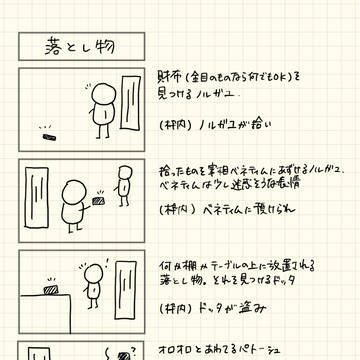 落とし物
財布(金目のものなら何でもOK)を
見つけるノルガユ.
(枠内) ノルガユが拾い
拾ったものを宰相ベネティムにあずけるノルガユ.
ベネティムは少し迷惑そうな表情
(枠内) ベネティムに預けられ
何か棚かテーブルの上に放置される
落とし物。それを見つけるドッタ
(枠内) ドッタが盗み
!
オロオロとあわてるパトーシェ
?